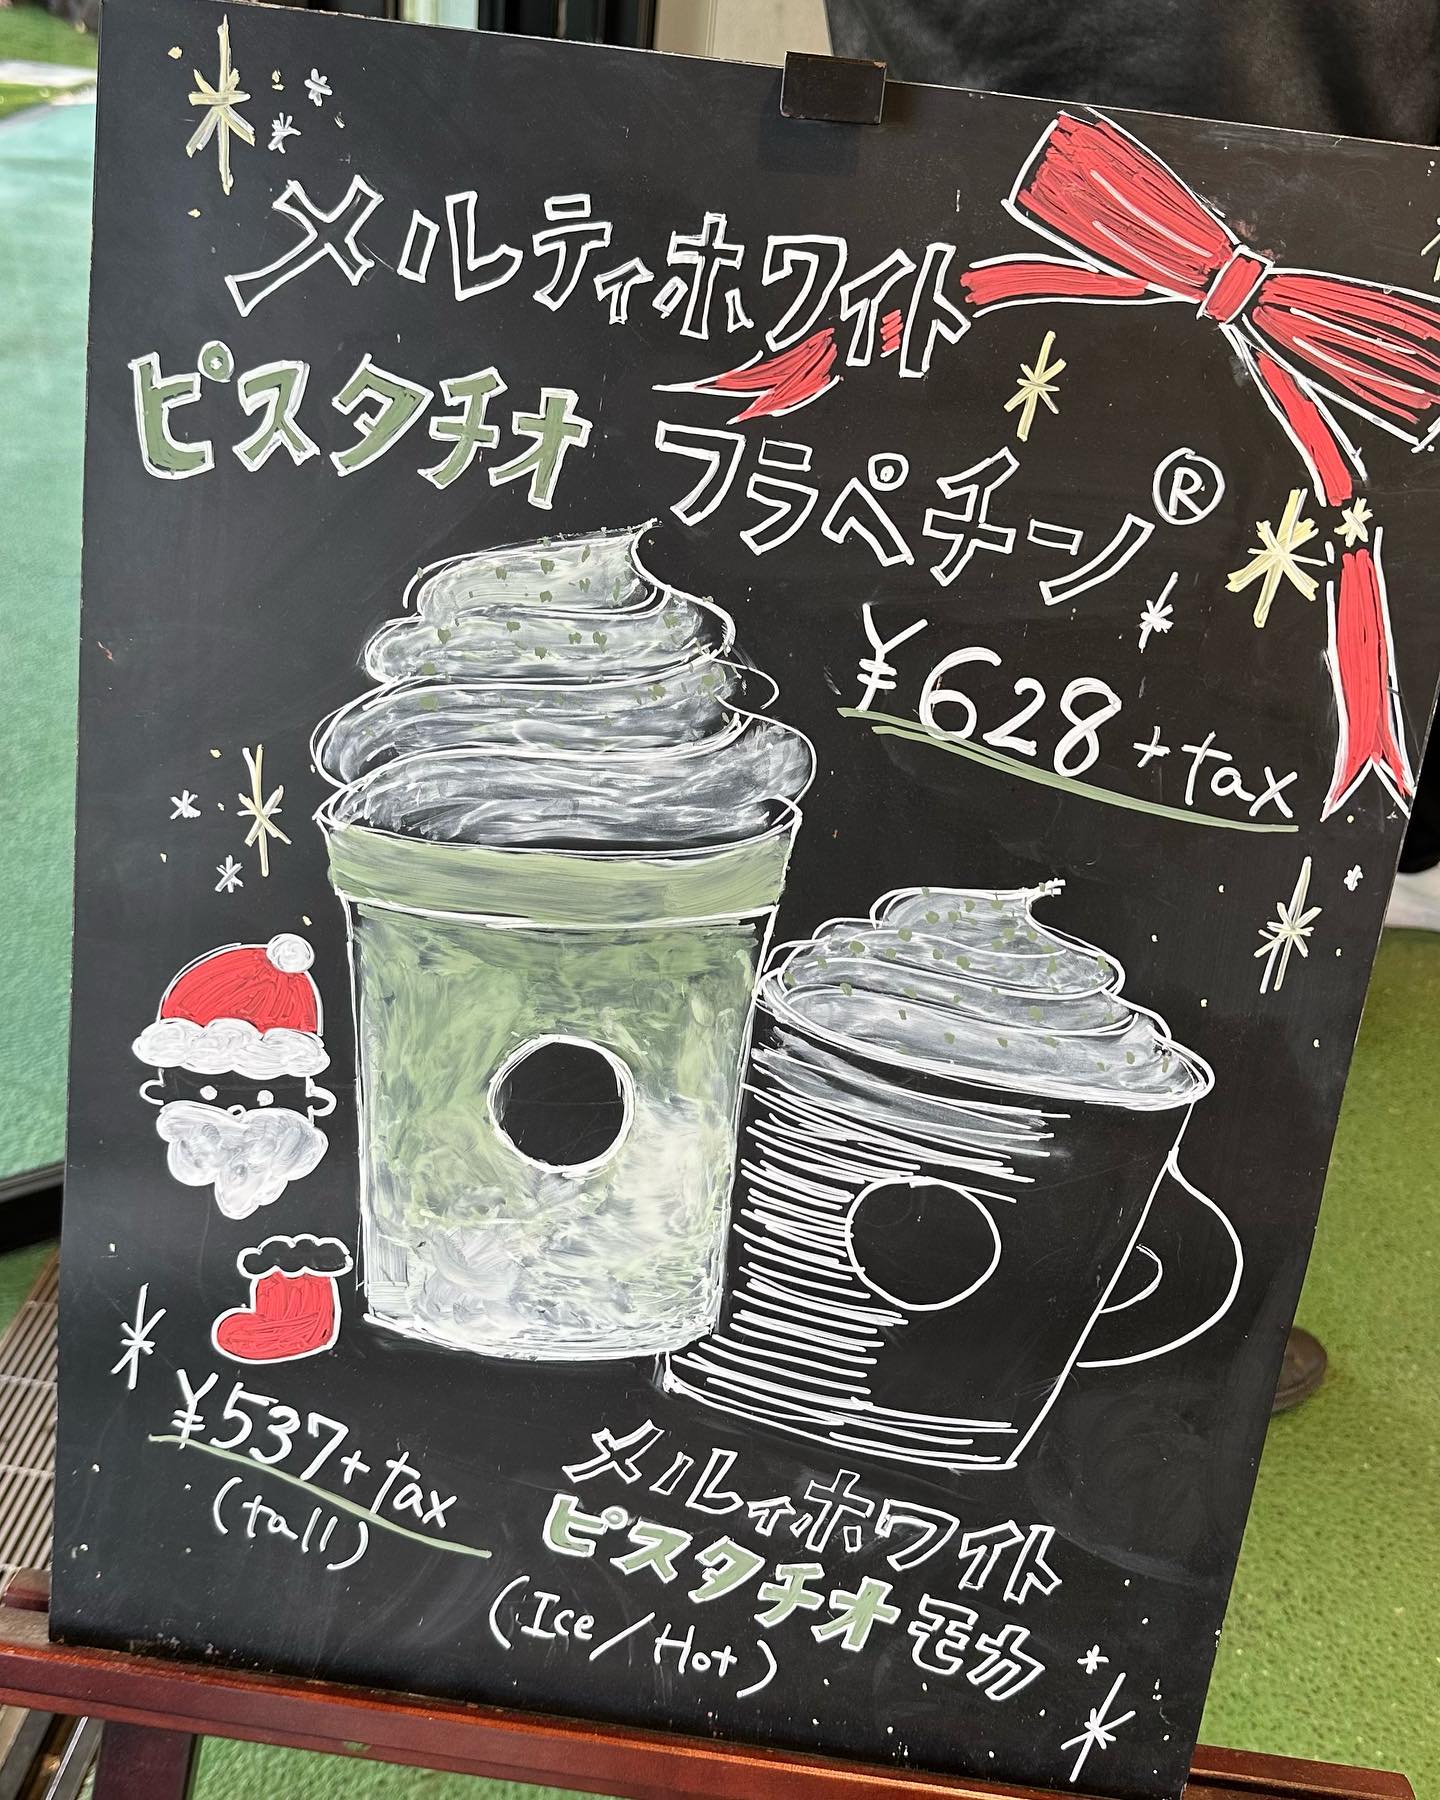 メルティホワイト
ピスタチオ フラペチーノ®
¥628+tax
¥537+tax
(tall)
メルティホワイト
ピスタチオモカ
(Ice/Hot)